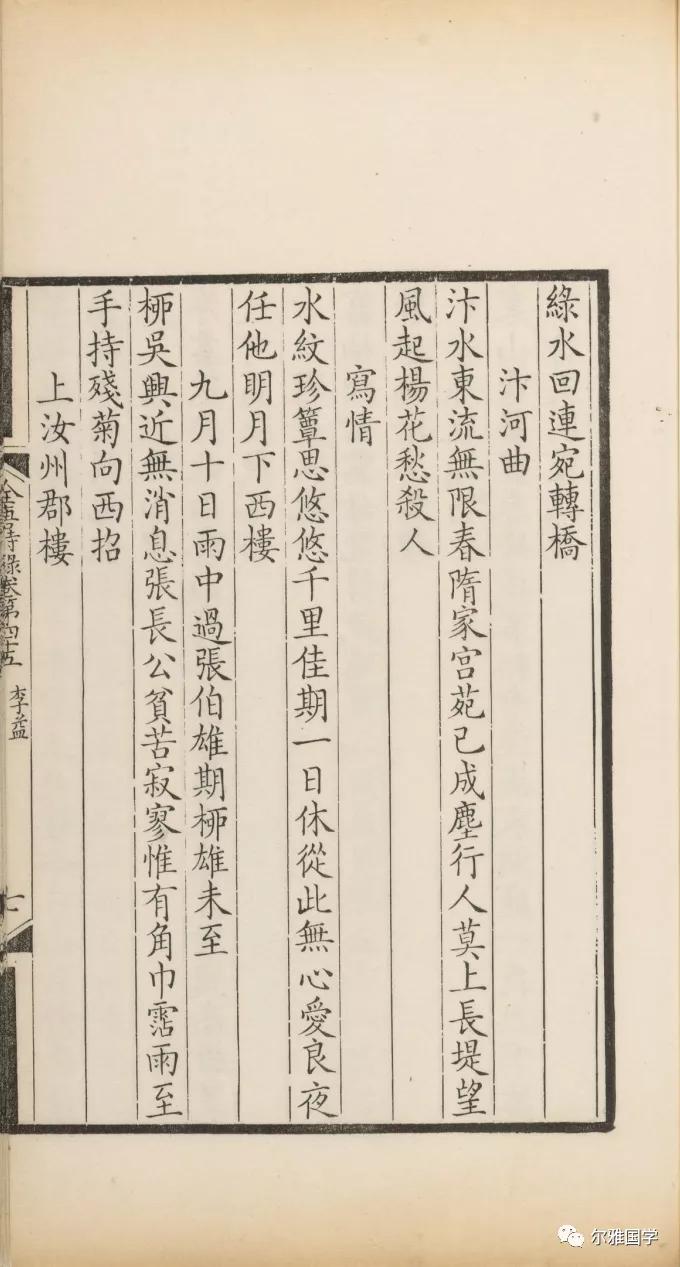 綠水回連宛轉橋
汴河曲
汴水東流無限春隋家宫苑已成塵行人莫上長堤望
風起楊花愁殺人
寫情
水紋珍簟思悠悠千里佳期一日休從此無心愛良夜
任他明月下西樓
九月十日雨中過張伯雄期栁雄未至
栁吳興近無消息張長公貧苦寂寥惟有角巾霑雨至
手持殘菊向西招
上汝州郡樓
詩錄卷第四十五 李益
七
尔雅国学